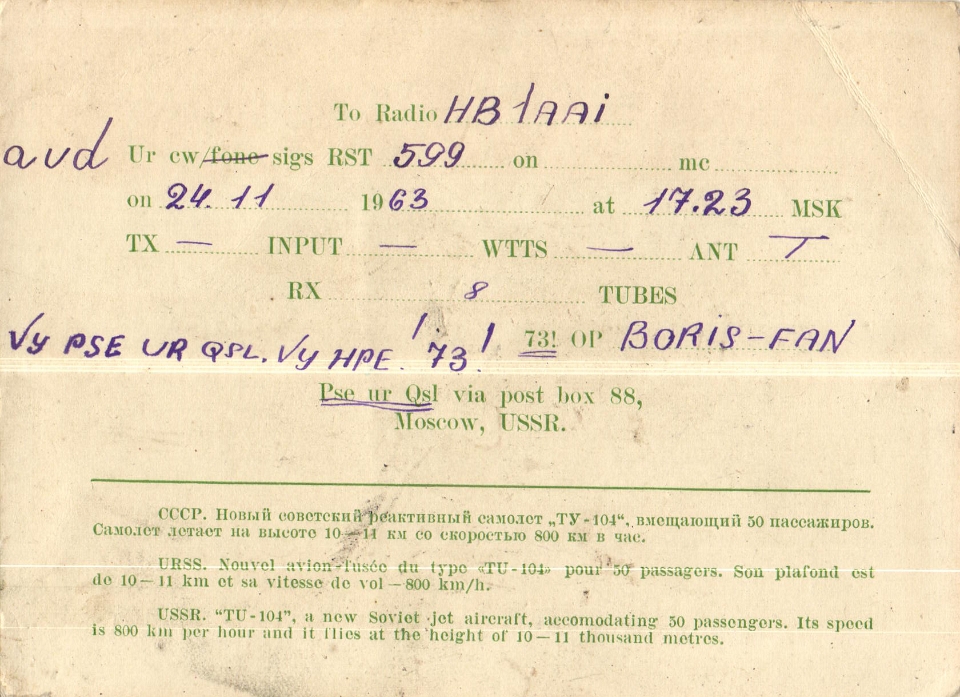 To Radio HB1AAi
avd Ur cw/fone sigs RST 599 on mc
on 24. 11 1963 at 17.23 MSK
TX — INPUT — WTTS — ANT T
RX 8 TUBES
Vy PSE UR QSL. Vy HPE. ! 73! 73! OP BORIS-FAN
Pse ur Qsl via post box 88,
Moscow, USSR.
СССР. Новый советский реактивный самолет „ТУ-104“, вмещающий 50 пассажиров.
Самолет летает на высоте 10—11 км со скоростью 800 км в час.
URSS. Nouvel avion-fusée du type «TU-104» pour 50 passagers. Son plafond est
de 10—11 km et sa vitesse de vol —800 km/h.
USSR. “TU-104”, a new Soviet jet aircraft, accomodating 50 passengers. Its speed
is 800 km per hour and it flies at the height of 10—11 thousand metres.